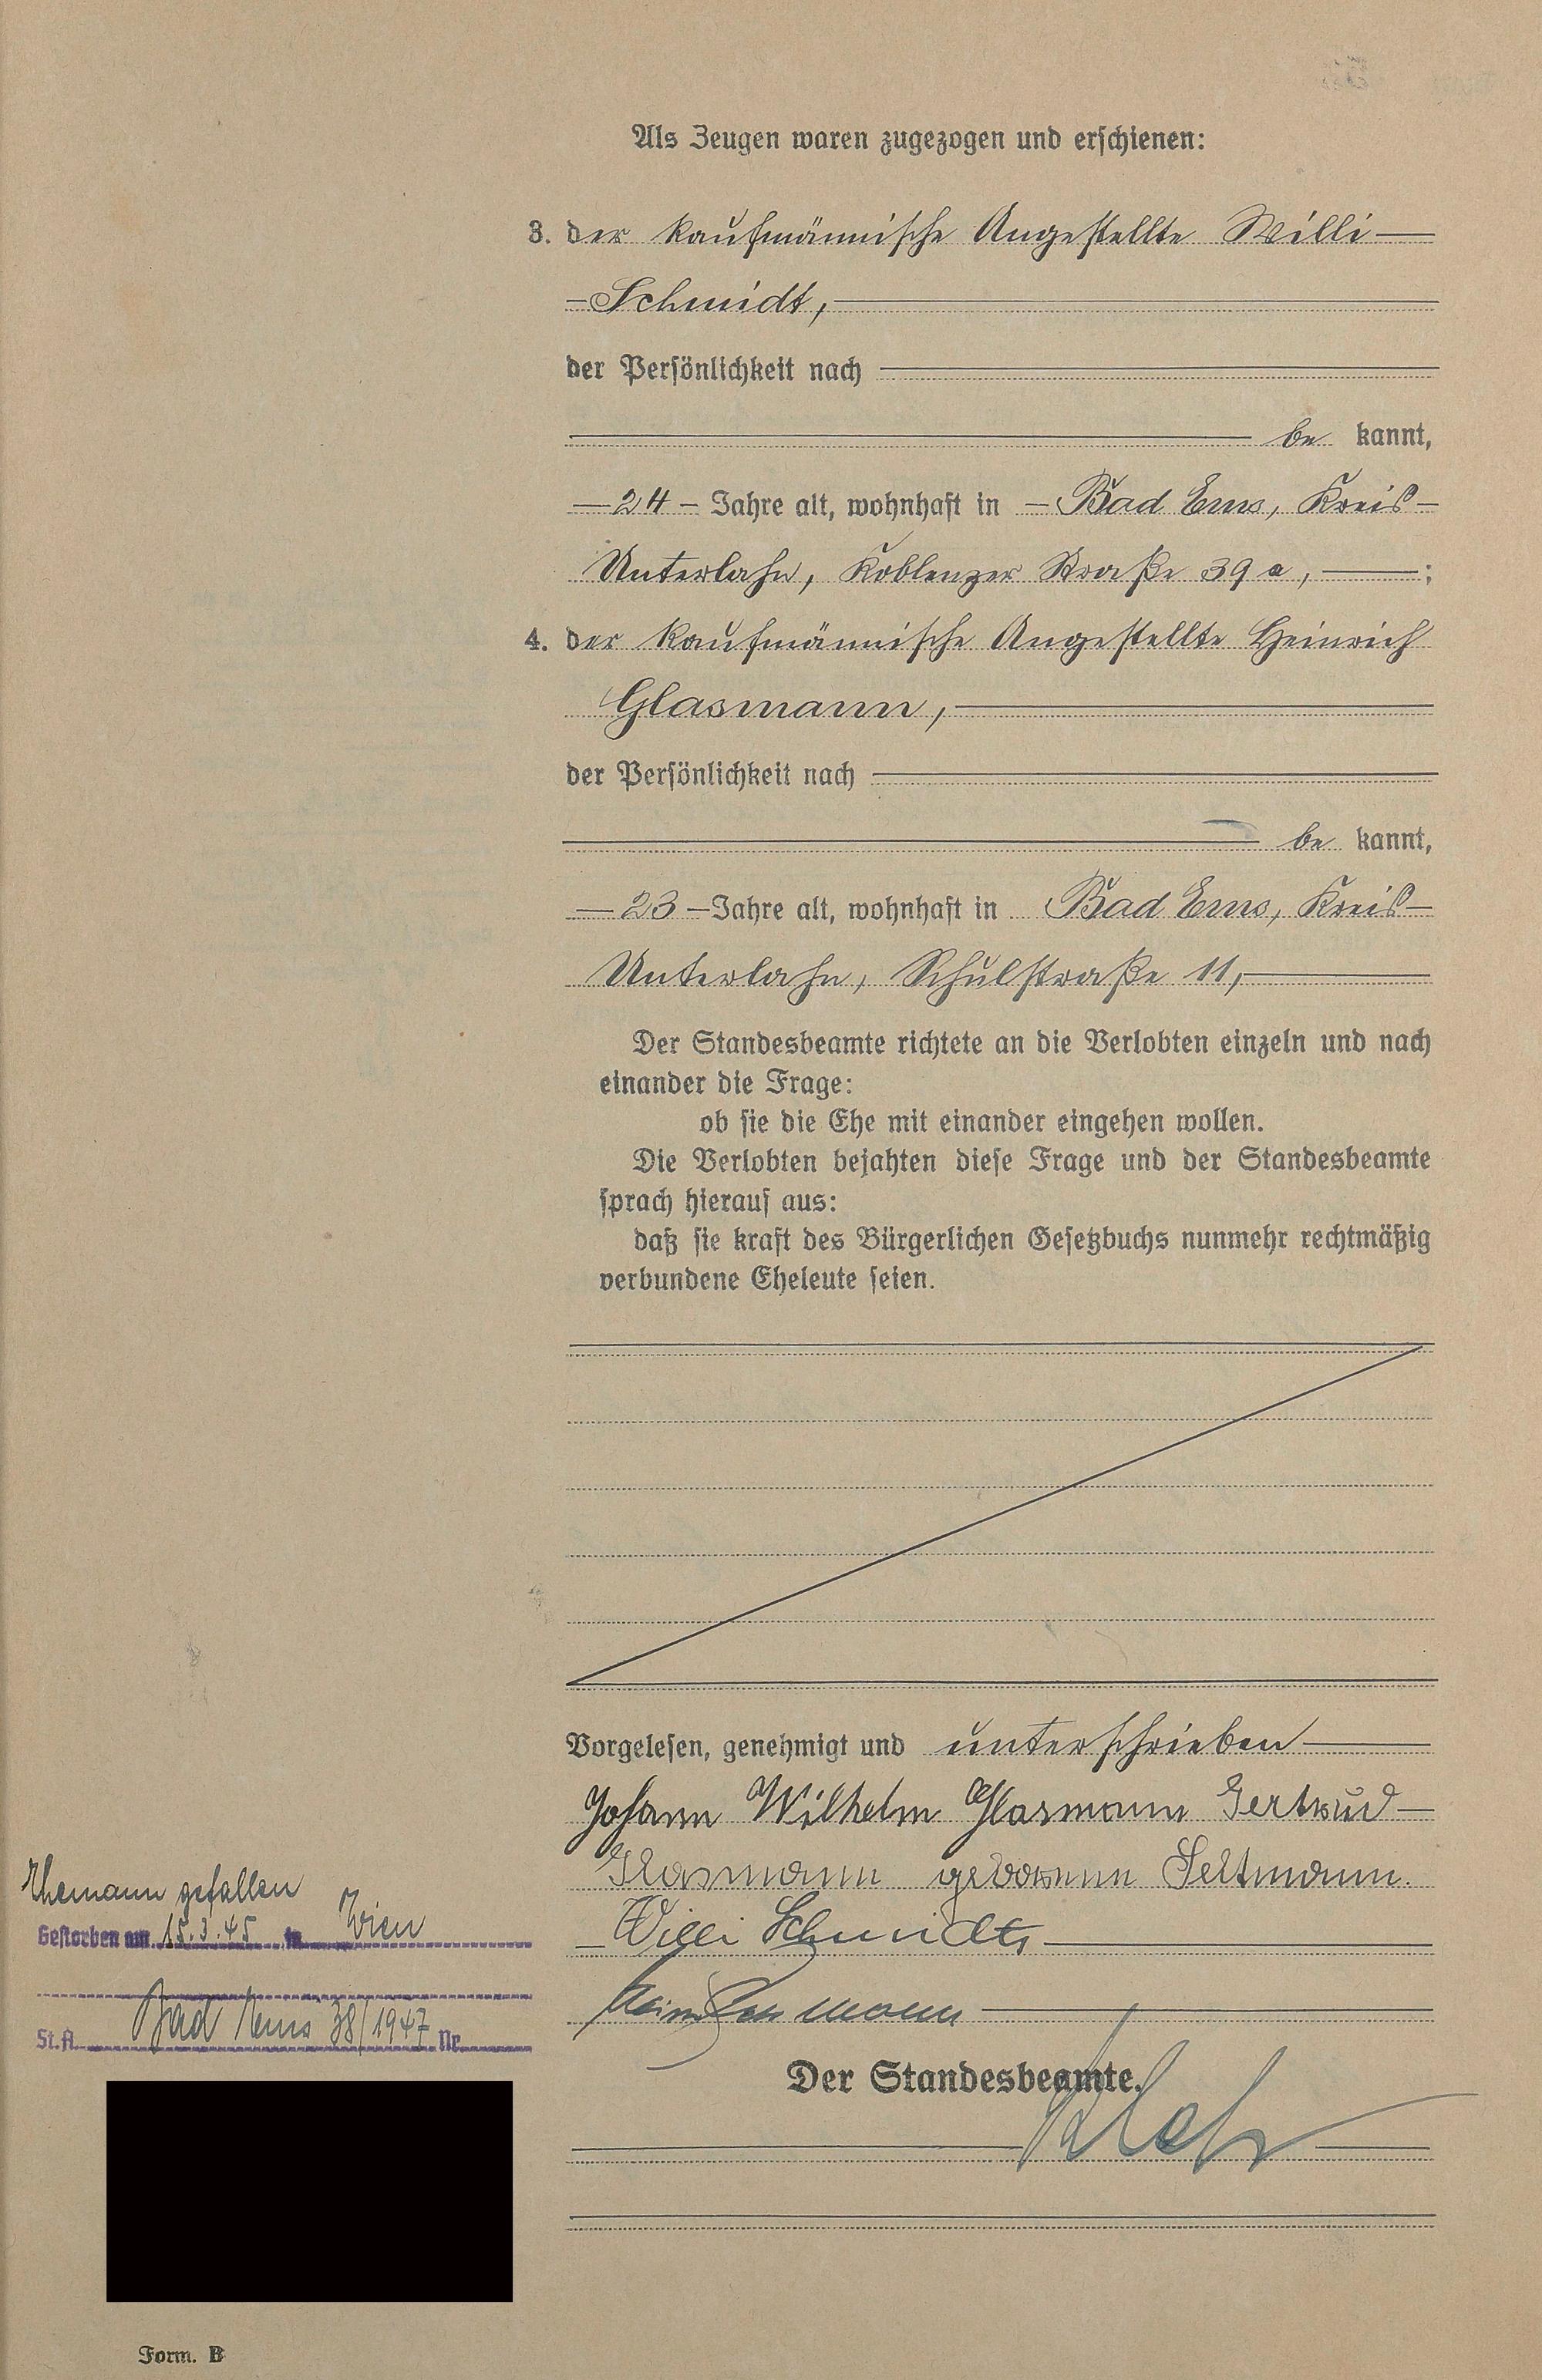 Als Zeugen waren zugezogen und erschienen:
3. der kaufmännische Angestellte Willi
Schmidt,
der Persönlichkeit nach
be kannt,
24 Jahre alt, wohnhaft in Bad Ems, Kreis
Unterlahn, Koblenzer Straße 39 a, ;
4. der kaufmännische Angestellte Heinrich
Glasmann,
der Persönlichkeit nach
be kannt,
23 Jahre alt, wohnhaft in Bad Ems, Kreis
Unterlahn, Schulstraße 11,
Der Standesbeamte richtete an die Verlobten einzeln und nach
einander die Frage:
ob sie die Ehe mit einander eingehen wollen.
Die Verlobten bejahten diese Frage und der Standesbeamte
sprach hierauf aus:
daß sie kraft des Bürgerlichen Gesetzbuchs nunmehr rechtmäßig
verbundene Eheleute seien.
Vorgelesen, genehmigt und unterschrieben
Johann Wilhelm Glasmann Gertrud
Glasmann geborene Seltmann.
Willi Schmidt,
Der Standesbeamte.
Ehemann gefallen
Gestorben am 15.3.45 in Wien
St. A. Bad Ems 38/1947 Nr.
Form. B